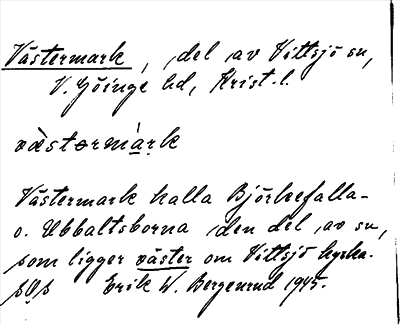 Västermark, del av Vittsjö sn,
V. Göinge hd, Krist. l.
vàstərmàrk
Västermark kalla Björkefalla-
o. Ubbaltsborna den del av sn,
som ligger väster om Vittsjö kyrka.
Erik W. Bergenrud 1945.